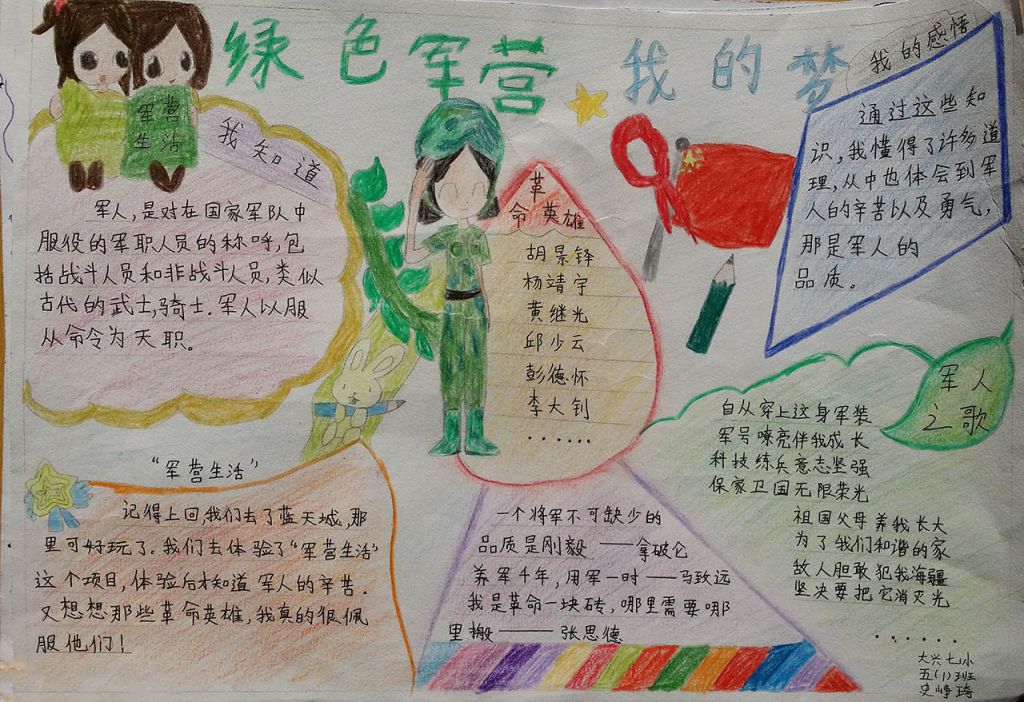 绿色军营 我的梦
军营
生活
我知道
军人,是对在国家军队中
服役的军职人员的称呼,包
括战斗人员和非战斗人员,类似
古代的武士,骑士.军人以服
从命令为天职。
革
命英雄
胡景铎
杨靖宇
黄继光
邱少云
彭德怀
李大钊
......
我的感悟
通过这些知
识,我懂得了许多道
理,从中也体会到军
人的辛苦以及勇气,
那是军人的
品质。
军人
之歌
自从穿上这身军装
军号嘹亮伴我成长
科技练兵意志坚强
保家卫国无限荣光
祖国父母养我长大
为了我们和谐的家
敌人胆敢犯我海疆
坚决要把它消灭光
......
“军营生活”
记得上回,我们去了蓝天城,那
里可好玩了.我们去体验了“军营生活”
这个项目,体验后才知道军人的辛苦.
又想想那些革命英雄,我真的很佩
服他们!
一个将军不可缺少的
品质是刚毅——拿破仑
养军千年,用军一时——马致远
我是革命一块砖,哪里需要哪
里搬——张思德
大兴七小
五(1)班
史峥琦